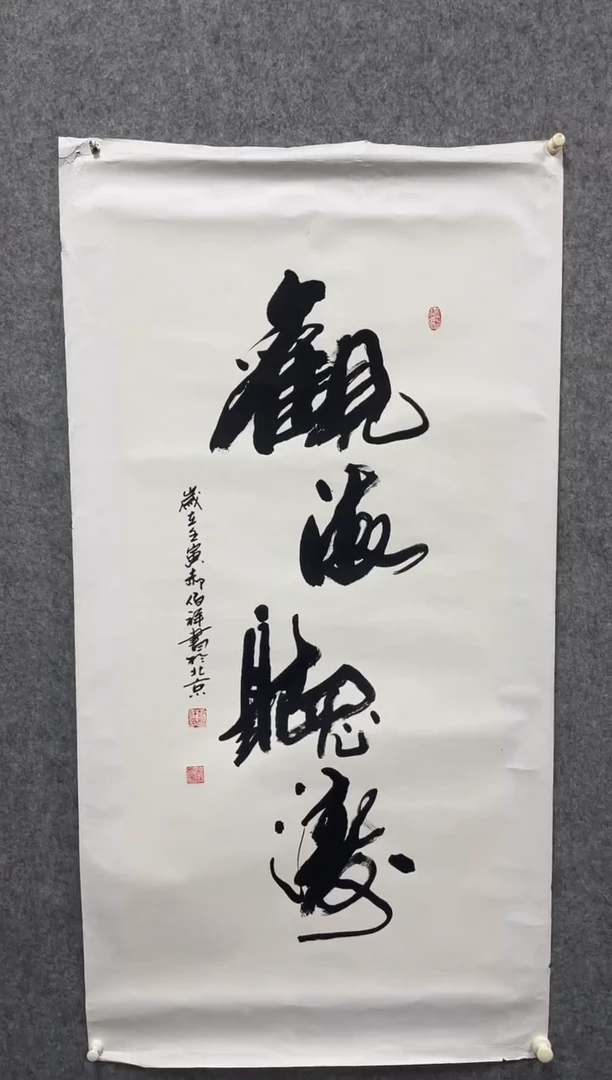 觀海聽濤
歲在壬寅郝伯祥書於北京